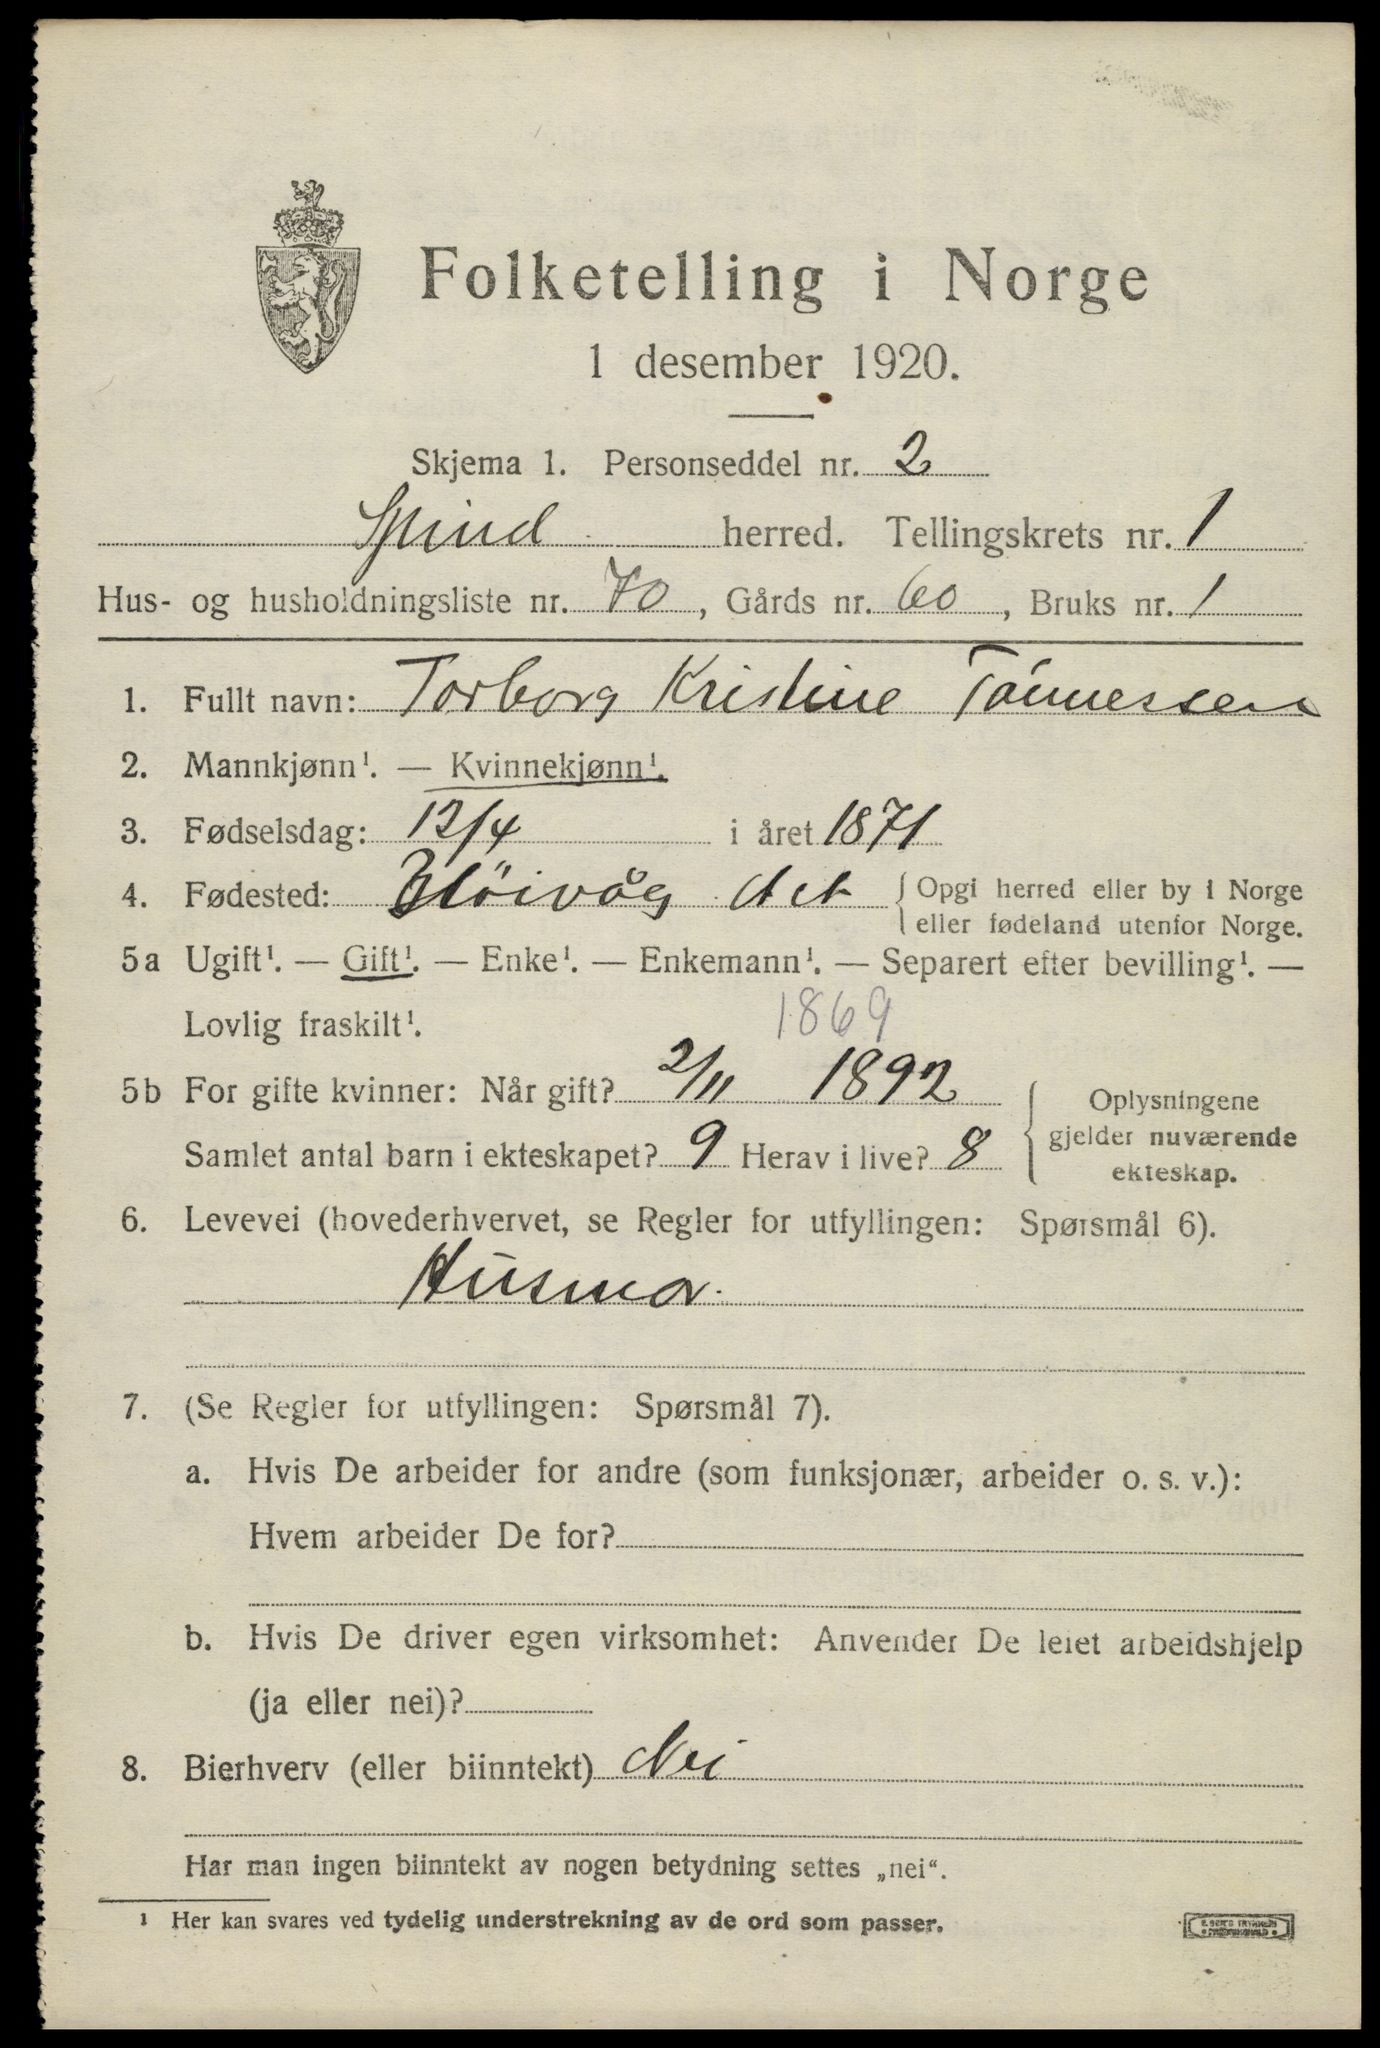 Folketelling i Norge
1 desember 1920.
Skjema 1. Personseddel nr. 2
Spind herred. Tellingskrets nr. 1
Hus- og husholdningsliste nr. 70, Gårds nr. 60, Bruks nr. 1
1. Fullt navn: Torborg Kristine Tönnessen
2. Mannkjønn¹. — Kvinnekjønn¹.
3. Fødselsdag: 12/4 i året 1871
4. Fødested: Höivåg { Opgi herred eller by i Norge
eller fødeland utenfor Norge.
5a Ugift¹. — Gift¹. — Enke¹. — Enkemann¹. — Separert efter bevilling¹. —
Lovlig fraskilt¹. 1869
5b For gifte kvinner: Når gift? 2/11 1892
Samlet antal barn i ekteskapet? 9 Herav i live? 8
{ Oplysningene
gjelder nuværende
ekteskap.
6. Levevei (hovederhvervet, se Regler for utfyllingen: Spørsmål 6).
Husmor.
7. (Se Regler for utfyllingen: Spørsmål 7).
a. Hvis De arbeider for andre (som funksjonær, arbeider o. s. v.):
Hvem arbeider De for?
b. Hvis De driver egen virksomhet: Anvender De leiet arbeidshjelp
(ja eller nei)?
8. Bierhverv (eller biinntekt) Nei
Har man ingen biinntekt av nogen betydning settes „nei“.
¹ Her kan svares ved tydelig understrekning av de ord som passer.